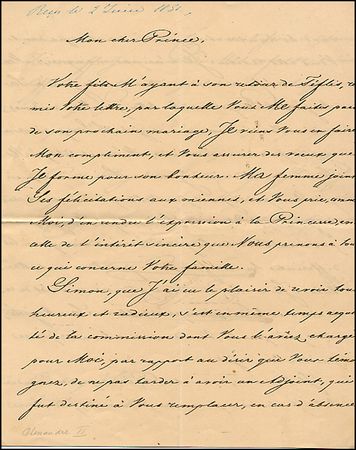 Reçu le 2 Juin 18
Mon cher Prince,
Votre fils M'ayant à son retour de Tiflis, re-
mis Votre lettre, par laquelle Vous Me faites part
de son prochain mariage, Je viens Vous en faire
Mon compliment, et Vous assurer des voeux que
Je forme pour son bonheur. Ma femme joint
Ses félicitations aux miennes, et Vous prie, comme
Moi, d'en rendre l'expression à la Princesse, en
celle de l'intérêt sincère que Nous prenons à tout
ce qui concerne Votre famille.
Simon, que J'ai eu le plaisir de revoir tout
heureux et radieux, s'est en même temps acquit-
té de la commission dont Vous l'aviez chargé
pour Moi, par rapport au désir que Vous témoi-
gnez, de ne pas tarder à avoir un Adjoint, qui
fut destiné à Vous remplacer, en cas d'absence
Alexandre II